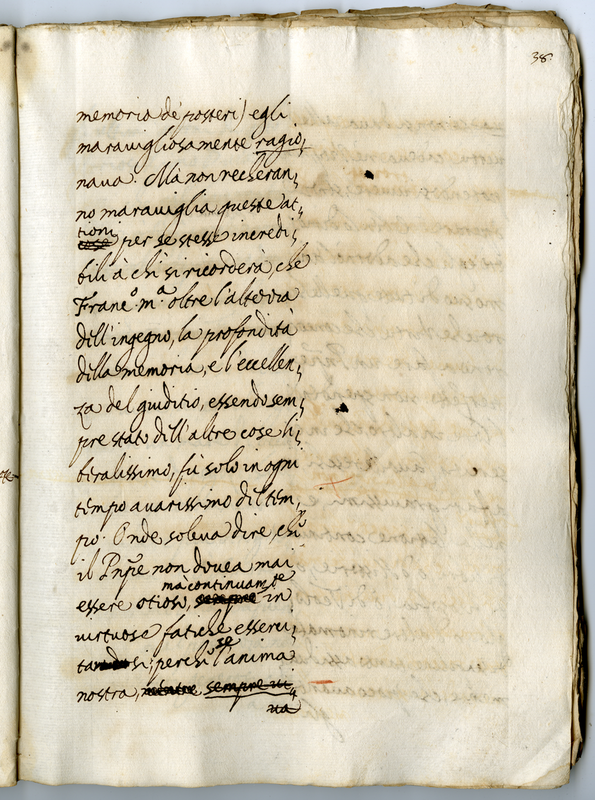 38.
memoria de' posteri) egli
maravigliosamente ragio,
nava. Mà non recheran,
no maraviglia queste at,
tioni
cose per se stesse incredi,
bili à chi si ricorderà, che
Franc.º m.ª oltre l'altezza
dell'ingegno, la profondità
della memoria, e l'eccellen,
za del giuditio, essendo sem,
pre stato dell'altre cose li,
beralissimo, fù solo in ogni
tempo avarissimo del tem,
po. Onde soleva dire, che
il Pnpe non dovea mai
mà continuam.te
essere otioso, sempre in
virtuose fatiche esserci,
tandosi; perche se l'anima
nostra, mentre sempre vi,
va